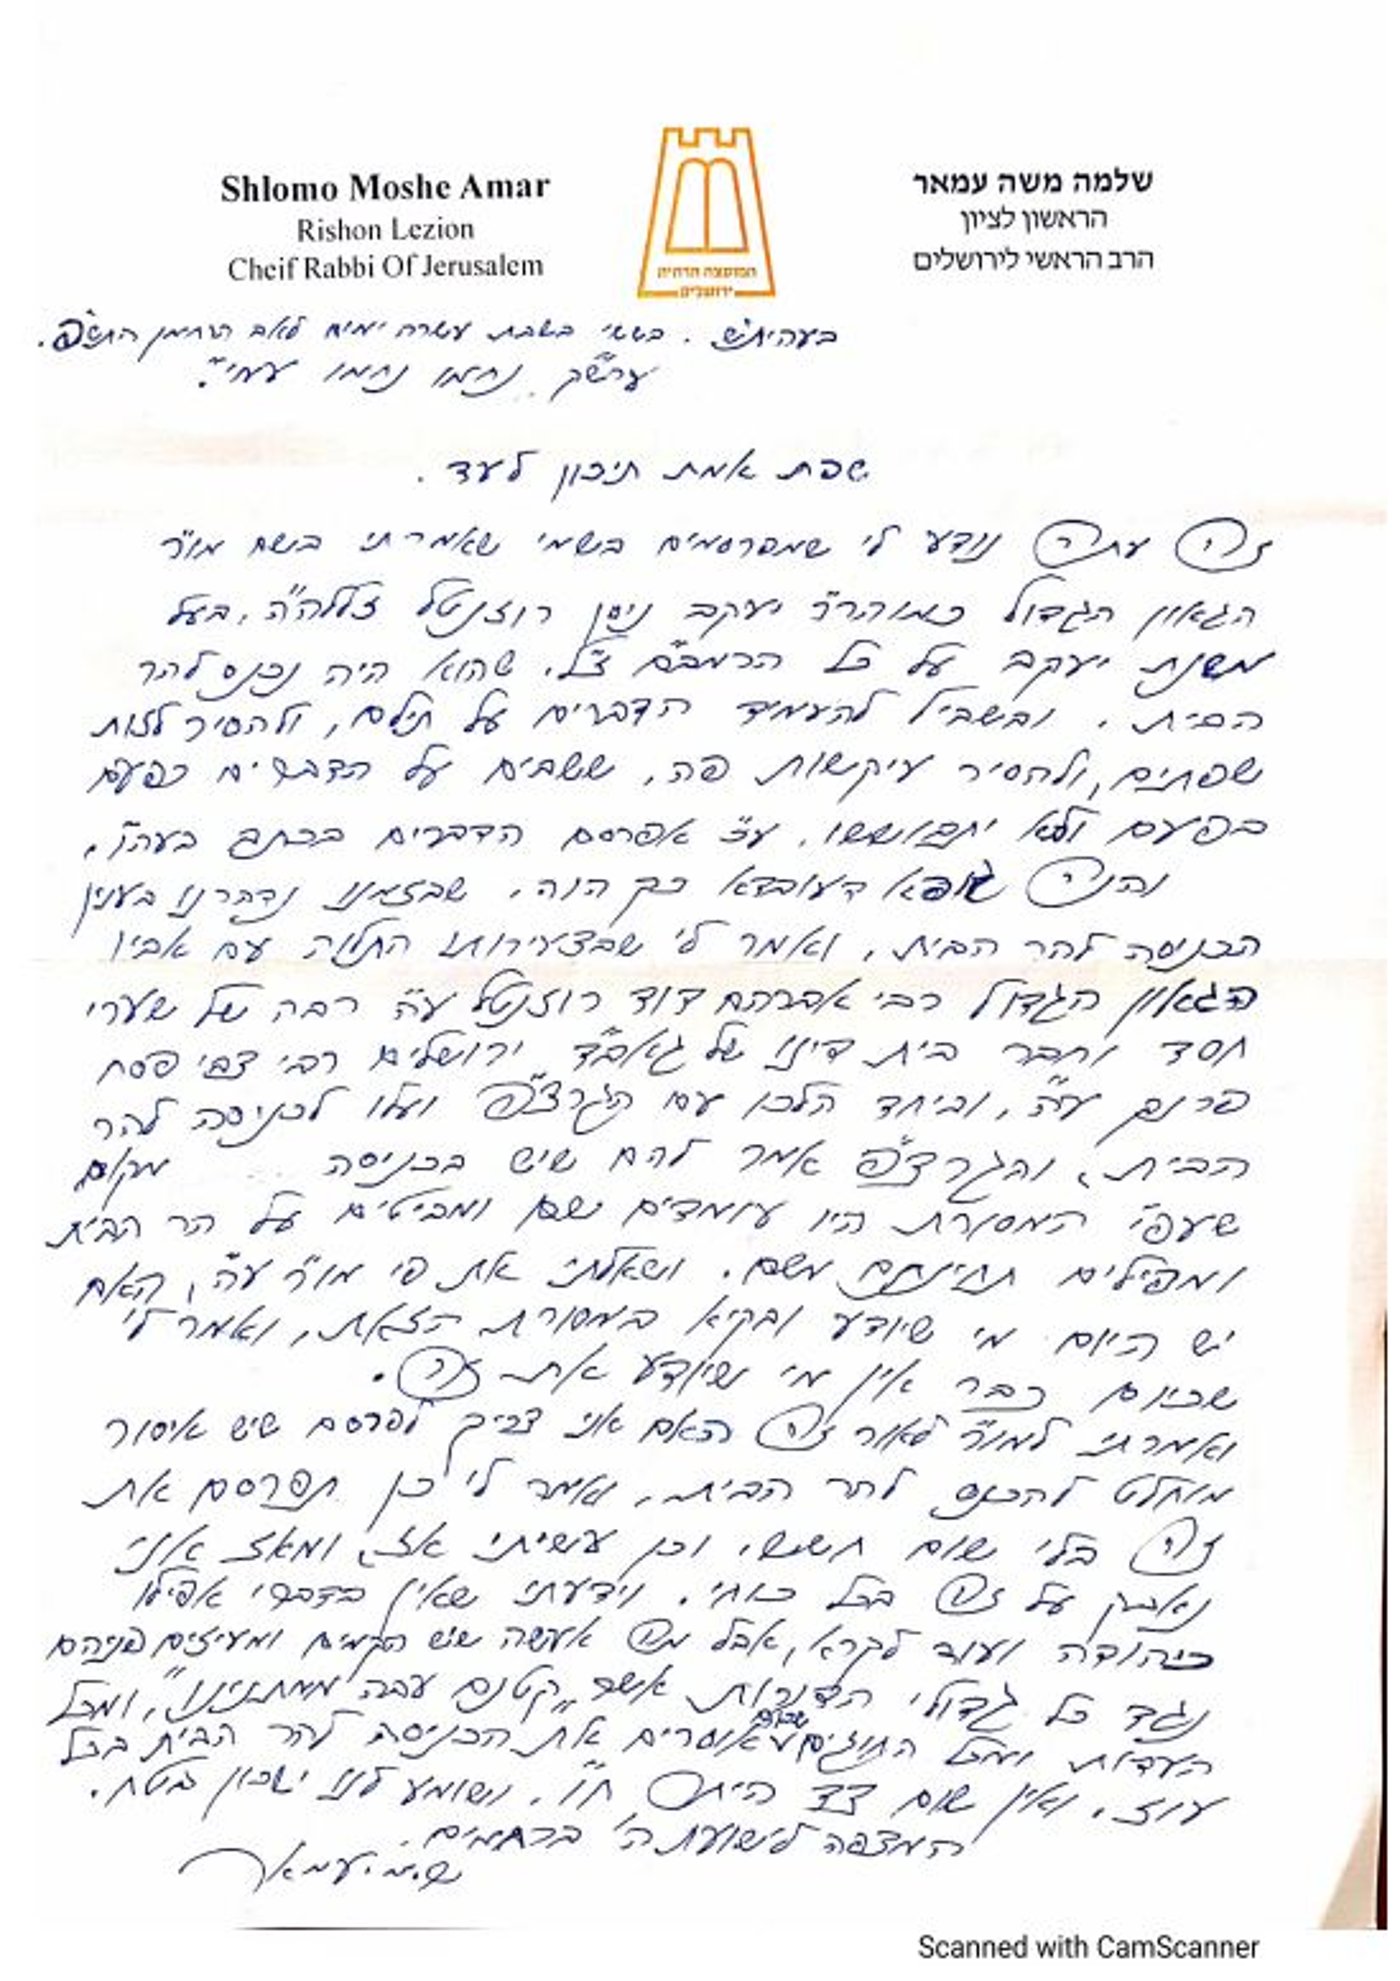 Shlomo Moshe Amar
Rishon Lezion
Cheif Rabbi Of Jerusalem
שלמה משה עמאר
הראשון לציון
הרב הראשי לירושלים
המועצה הדתית
ירושלים
בעהית"ש. בששי בשבת עשרה ימים לאב הרחמן התש"פ.
ערש"ק נחמו נחמו עמי".
שפת אמת תיכון לעד.
זה עתה נודע לי שמפרסמים בשמי שאמרתי בשם מו"ר
הגאון הגדול כמוהר"ר יעקב ניסן רוזנטל זללה"ה, בעל
משנת יעקב על כל הרמב"ם ז"ל. שהוא היה נכנס להר
הבית. ובשביל להעמיד הדברים על תילם, ולהסיר לזות
שפתים, ולהסיר עיקשות פה, ששבים על הדברים כפעם
בפעם ולא יתבוששו. ע"כ אפרסם הדברים בכתב בעה"ו.
והנה גופא דעובדא כך הוה, שבזמנו נדברנו בענין
הכניסה להר הבית, ואמר לי שבצעירותו התלוה עם אביו
הגאון הגדול רבי אברהם דוד רוזנטל ע"ה רבה של שערי
חסד וחבר בית דינו של גאב"ד ירושלים רבי צבי פסח
פרנק ע"ה, וביחד הלכו עם הגרצ"פ ועלו לכניסה להר
הבית, והגרצ"פ אמר להם שיש בכניסה מקום
שעפ"י המסורת היו עומדים שם ומביטים על הר הבית
ומפילים תחינתם משם. ושאלתי את פי מו"ר ע"ה, האם
יש היום מי שיודע ובקיא במסורת הזאת, ואמר לי
שכיום כבר אין מי שיודע את זה.
ואמרתי למו"ר לאור זה האם אני צריך לפרסם שיש איסור
מוחלט להכנס להר הבית, ואמר לי כן תפרסם את
זה בלי שום חשש, וכן עשיתי אז, ומאז אני
נאבק על זה בכל כוחי. וידעתי שאין בדברי אפילו
כיהודה ועוד לקרא, אבל מה אעשה שיש הקמים ומעיזים פניהם
נגד כל גדולי הדורות אשר "קטנם עבה ממתנינו", ומכל
העדות ומכל החוגים שכולם אוסרים את הכניסה להר הבית בכל
עוז, ואין שום צד היתר ח"ו. ושומע לנו ישכון בטח.
המצפה לישועת ה' ברחמים.
ש.מ. עמאר
Scanned with CamScanner